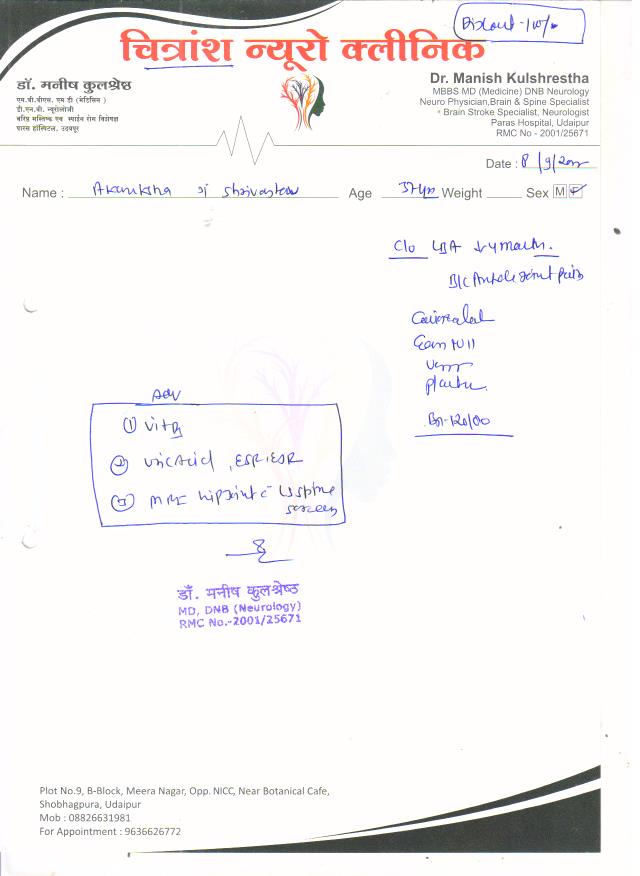 चित्रांश न्यूरो क्लीनिक
डॉ. मनीष कुलश्रेष्ठ
एम.बी.बीएस. एम डी (मेडिसिन)
डी.एन.बी. न्यूरोलोजी
वरिष्ठ मस्तिष्क एवं स्पाईन रोग विशेषज्ञ
पारस हॉस्पिटल, उदयपुर
Dr. Manish Kulshrestha
MBBS MD (Medicine) DNB Neurology
Neuro Physician,Brain & Spine Specialist
Brain Stroke Specialist, Neurologist
Paras Hospital, Udaipur
RMC No - 2001/25671
Date : 8/9/2022
Name : Akanksha Shrivastava Age 37yrs Weight Sex M F
C/o LBA
B/L Ankle Joint pain
Adv
① Vit D3
② Uric Acid, ESR, ESR
③ MRI hip joint c LS spine
screen
डॉ. मनीष कुलश्रेष्ठ
MD, DNB (Neurology)
RMC No.-2001/25671
Plot No.9, B-Block, Meera Nagar, Opp. NICC, Near Botanical Cafe,
Shobhagpura, Udaipur
Mob : 08826631981
For Appointment : 9636626772